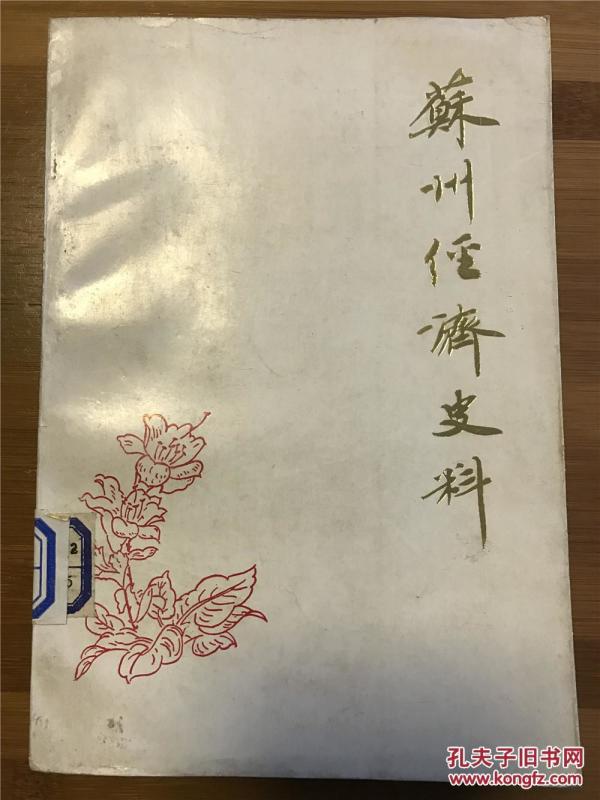 蘇州經濟史料
2
5
孔夫子旧书网
www.kongfz.com